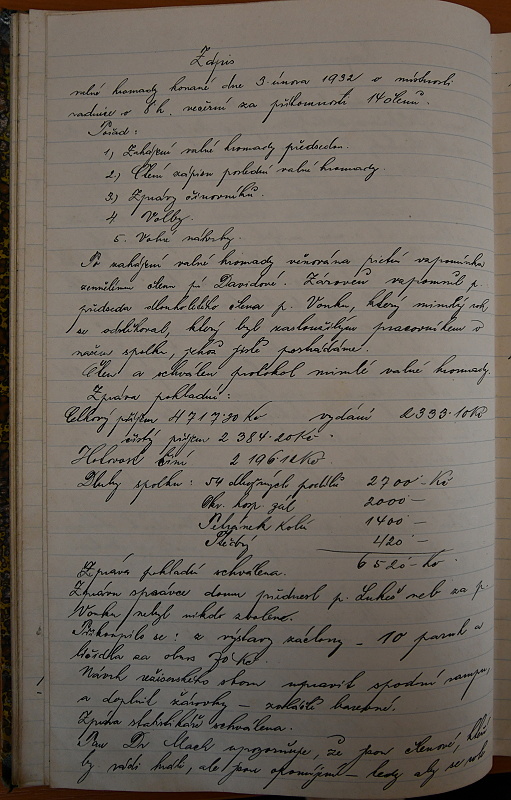 Zápis
valné hromady konané dne 3. února 1932 v místnosti
radnice v 8 h. večerní za přítomnosti 14 členů.
Pořad:
1, Zahájení valné hromady předsedou.
2.) Čtení zápisu poslední valné hromady.
3.) Zprávy činovníků.
4 Volby.
5. Volné návrhy.
Po zahájení valné hromady věnována pietní vzpomínka
zemřelému členu pí Davidové. Zároveň vzpomněl p.
předseda dlouholetého člena p. Vonku, který minulý rok
se odstěhoval, který byl zasloužilým pracovníkem v
našem spolku, jehož jistě postrádáme.
Čten a schválen protokol minulé valné hromady.
Zpráva pokladní:
Celkový příjem 4717·30 Kč vydání 2333·10 Kč
čistý příjem 2 384·20 Kč.
Hotovost činí 2 196·12 Kč.
Dluhy spolku: 54 podílů 2700 – Kč
Okr. hosp. zál. 2000 –
Petránek Kolín 1400 –
420 –
6520 – Kč.
Zpráva pokladní schválena.
Zprávu správce domu přednesl p. Lukeš neb za p.
Vonku nebyl nikdo zvolen.
Přikoupilo se: z výstavy záclony – 10 paruk a
za obnos 70 Kč.
Návrh režisérského sboru upravit spodní rampu,
a doplnit žárovky – zvláště barevné.
Zpráva statistikáře schválena.
Pan Dr Mach upozorňuje, že jsou členové, kteří
by rádi hráli, ale jsou opomíjeni – tedy aby se